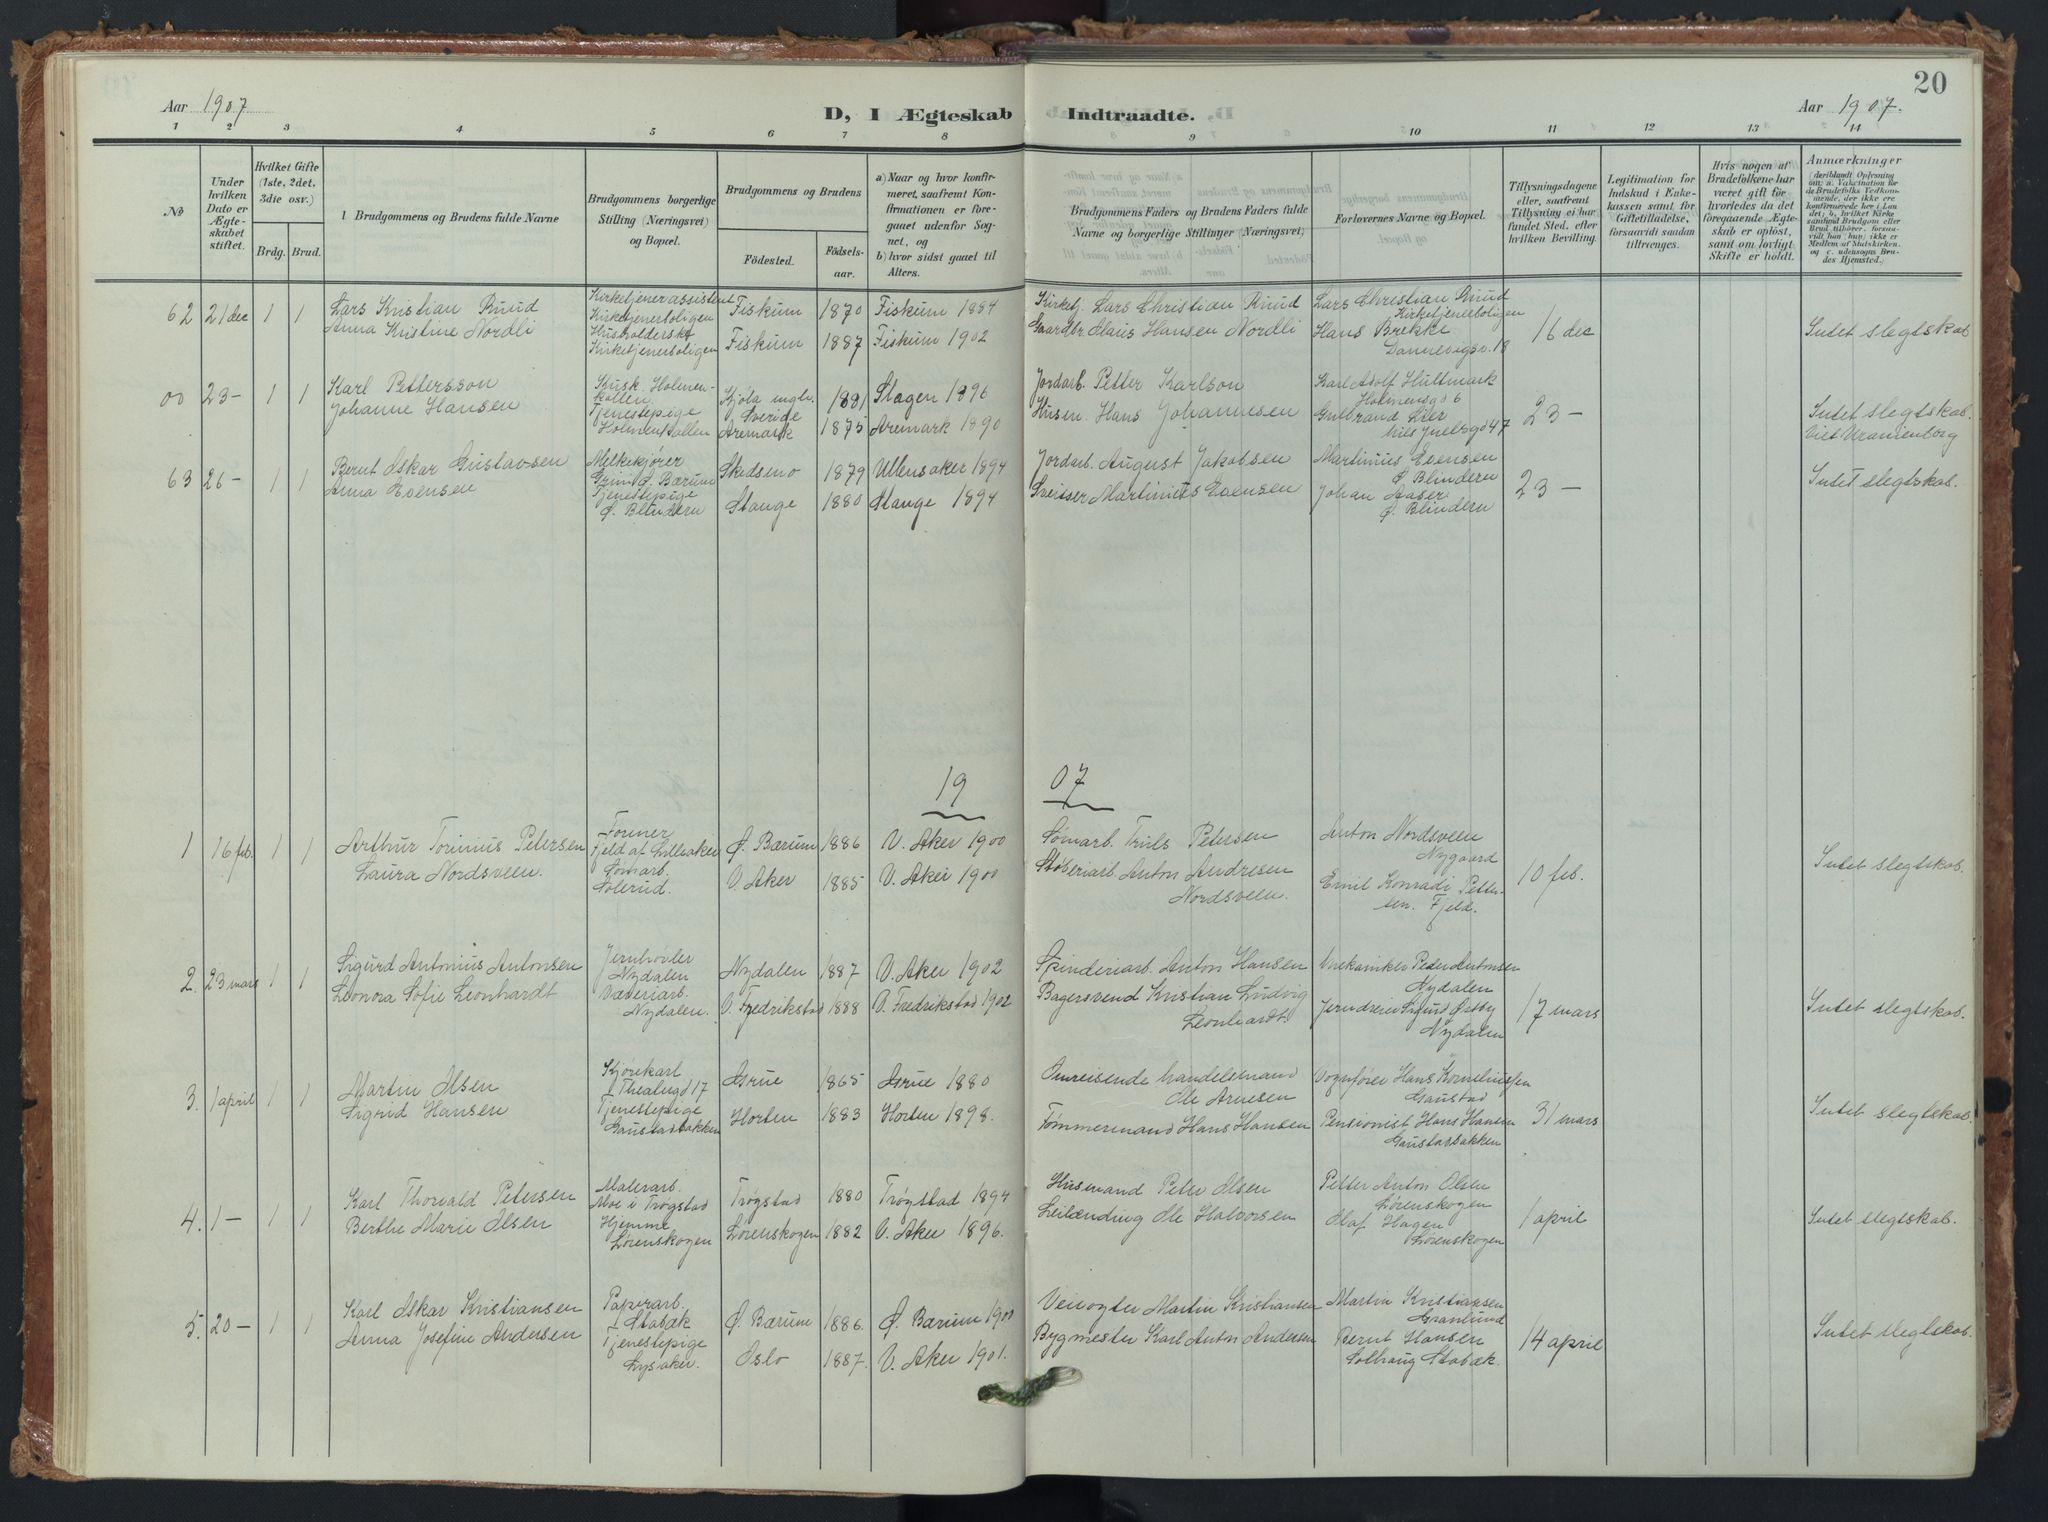 20
Aar 1907
D, I Ægteskab Indtraadte.
Aar 1907.
1 2 3 4 5 6 7 8 9 10 11 12 13 14
No
Under hvilken Dato er Ægteskabet stiftet.
Hvilket Gifte (1ste, 2det, 3die osv.)
Brdg. Brud.
1 Brudgommens og Brudens fulde Navne
Brudgommens borgerlige Stilling (Næringsvei) og Bopæl.
Brudgommens og Brudens
Födested. Födselsaar.
a) Naar og hvor konfirmeret, saafremt Konfirmationen er foregaaet udenfor Sognet, og
b) hvor sidst gaaet til Alters.
Brudgommens Faders og Brudens Faders fulde Navne og borgerlige Stillinger (Næringsvei)
Forlovernes Navne og Bopæl.
Tillysningsdagene eller, saafremt Tillysning ei har fundet Sted, efter hvilken Bevilling.
Legitimation for Indskud i Enkekassen samt for Giftetilladelse, forsaavidt saadan tiltrænges.
Hvis nogen af Brudefolkene har været gift før, hvorledes da det foregaaende Ægteskab er oplöst, samt om lovligt Skifte er holdt.
Anmærkninger (deriblandt Oplysning om: a. Vakcination for de Brudefolks Vedkommende, der ikke ere konfirmerede her i Landet; b. hvilket Kirkesamfund Brudgom eller Brud tilhører, forsaavidt han (hun) ikke er Medlem af Statskirken, og c. udensogns Brudes Hjemsted.)
62 21 dec 1 1 Lars Kristian Ruud Kirketjenerassistent Kirketjenerboligen Fiskum 1870 Fiskum 1884 Kirketj. Lars Christian Ruud Lars Christian Ruud Kirketjenerboligen 16 dec Intet slegtskab
Anna Kristine Nordli Husholderske Kirketjenerboligen Fiskum 1887 Fiskum 1902 Gaardbr. Maus Hansen Nordli Hans Brekke Dannevigsv. 18
00 23 - 1 1 Karl Pettersson Kusk Holmenkollen. Sverige 1881 Stagen 1896 Jordarb. Petter Karlson Karl Adolf Hultmark Holmensgd 6 23 - Intet slegtskab.
Johanne Hansen Tjenestepige Holmenkollen Aremark 1875 Aremark 1890 Husm. Hans Johannesen Gulbrand Lier Nils Juelsgd 47 Viet Uranienborg
63 26 - 1 1 Bernt Oskar Gustavsen Melkekjører Grini Ø. Bærum Skedsmo 1879 Ullensaker 1894 Jordarb. August Jakobsen Martinius Evensen Ø. Blindern 23 - Intet slegtskab.
Anna Evensen Tjenestepige Ø. Blindern Stange 1880 Stange 1894 Sveitser Martinius Evensen Johan Aaser Ø. Blindern
1907
1 16 feb. 1 1 Arthur Torinius Petersen Former Fjeld af Lilleaker Ø. Bærum 1886 V. Aker 1900 Sømarb. Truls Petersen Anton Nordsveen Nygaard 10 feb. Intet slegtskab.
Laura Nordsveen. Sømarb. Solerud. V. Aker 1885 V. Aker 1900 Støberiarb. Anton Andresen Nordsveen. Emil Konradi Pettersen. Fjeld.
2. 23 mars 1 1 Sigurd Antonius Antonsen Jernhøvler Nydalen Nydalen 1887 V. Aker 1902 Spinderiarb. Anton Hansen Peder Antonsen Nydalen 17 mars Intet slegtskab.
Leonora Sofie Leonhardt Væveriarb. Nydalen. V. Fredrikstad 1888 V. Fredrikstad 1902 Bagersvend Kristian Ludvig Leonhardt. Jerndreier Sigurd Østby Nydalen
3. 1 april 1 1 Martin Olsen Kjørekarl Thealugd 17 1865 1880 Omreisende handelsmand Ole Arnesen Vognfører Hans Korneliussen Gaustad 31 mars Intet slegtskab.
Sigrid Hansen Tjenestepige Gaustadbakken Horten 1883 Horten 1898. Tømmermand Hans Hansen Pensionist Hans Hansen Gaustadbakken
4. 1 - 1 1 Karl Thorvald Petersen Malerarb. Moe i Trøgstad Trøgstad 1880 Trøgstad 1894 Husmand Peter Olsen Petter Anton Olsen Lørenskogen 1 april Intet slegtskab.
Berthe Marie Olsen Hjemme Lørenskogen Lørenskogen 1882 V. Aker 1896. Leilænding Ole Halvorsen Olaf Hagen Lørenskogen
5. 20 - 1 1 Karl Oskar Kristiansen Papirarb. Stabæk Ø. Bærum 1886. Ø. Bærum 1900 Veivogter Martin Kristiansen Martin Kristiansen Granlund 14 april Intet slegtskab.
Anna Josefine Andersen Tjenestepige Lysaker. Oslo 1887. V. Aker 1901. Bygmester Karl Anton Andersen Bernt Hansen Solhaug Stabæk.